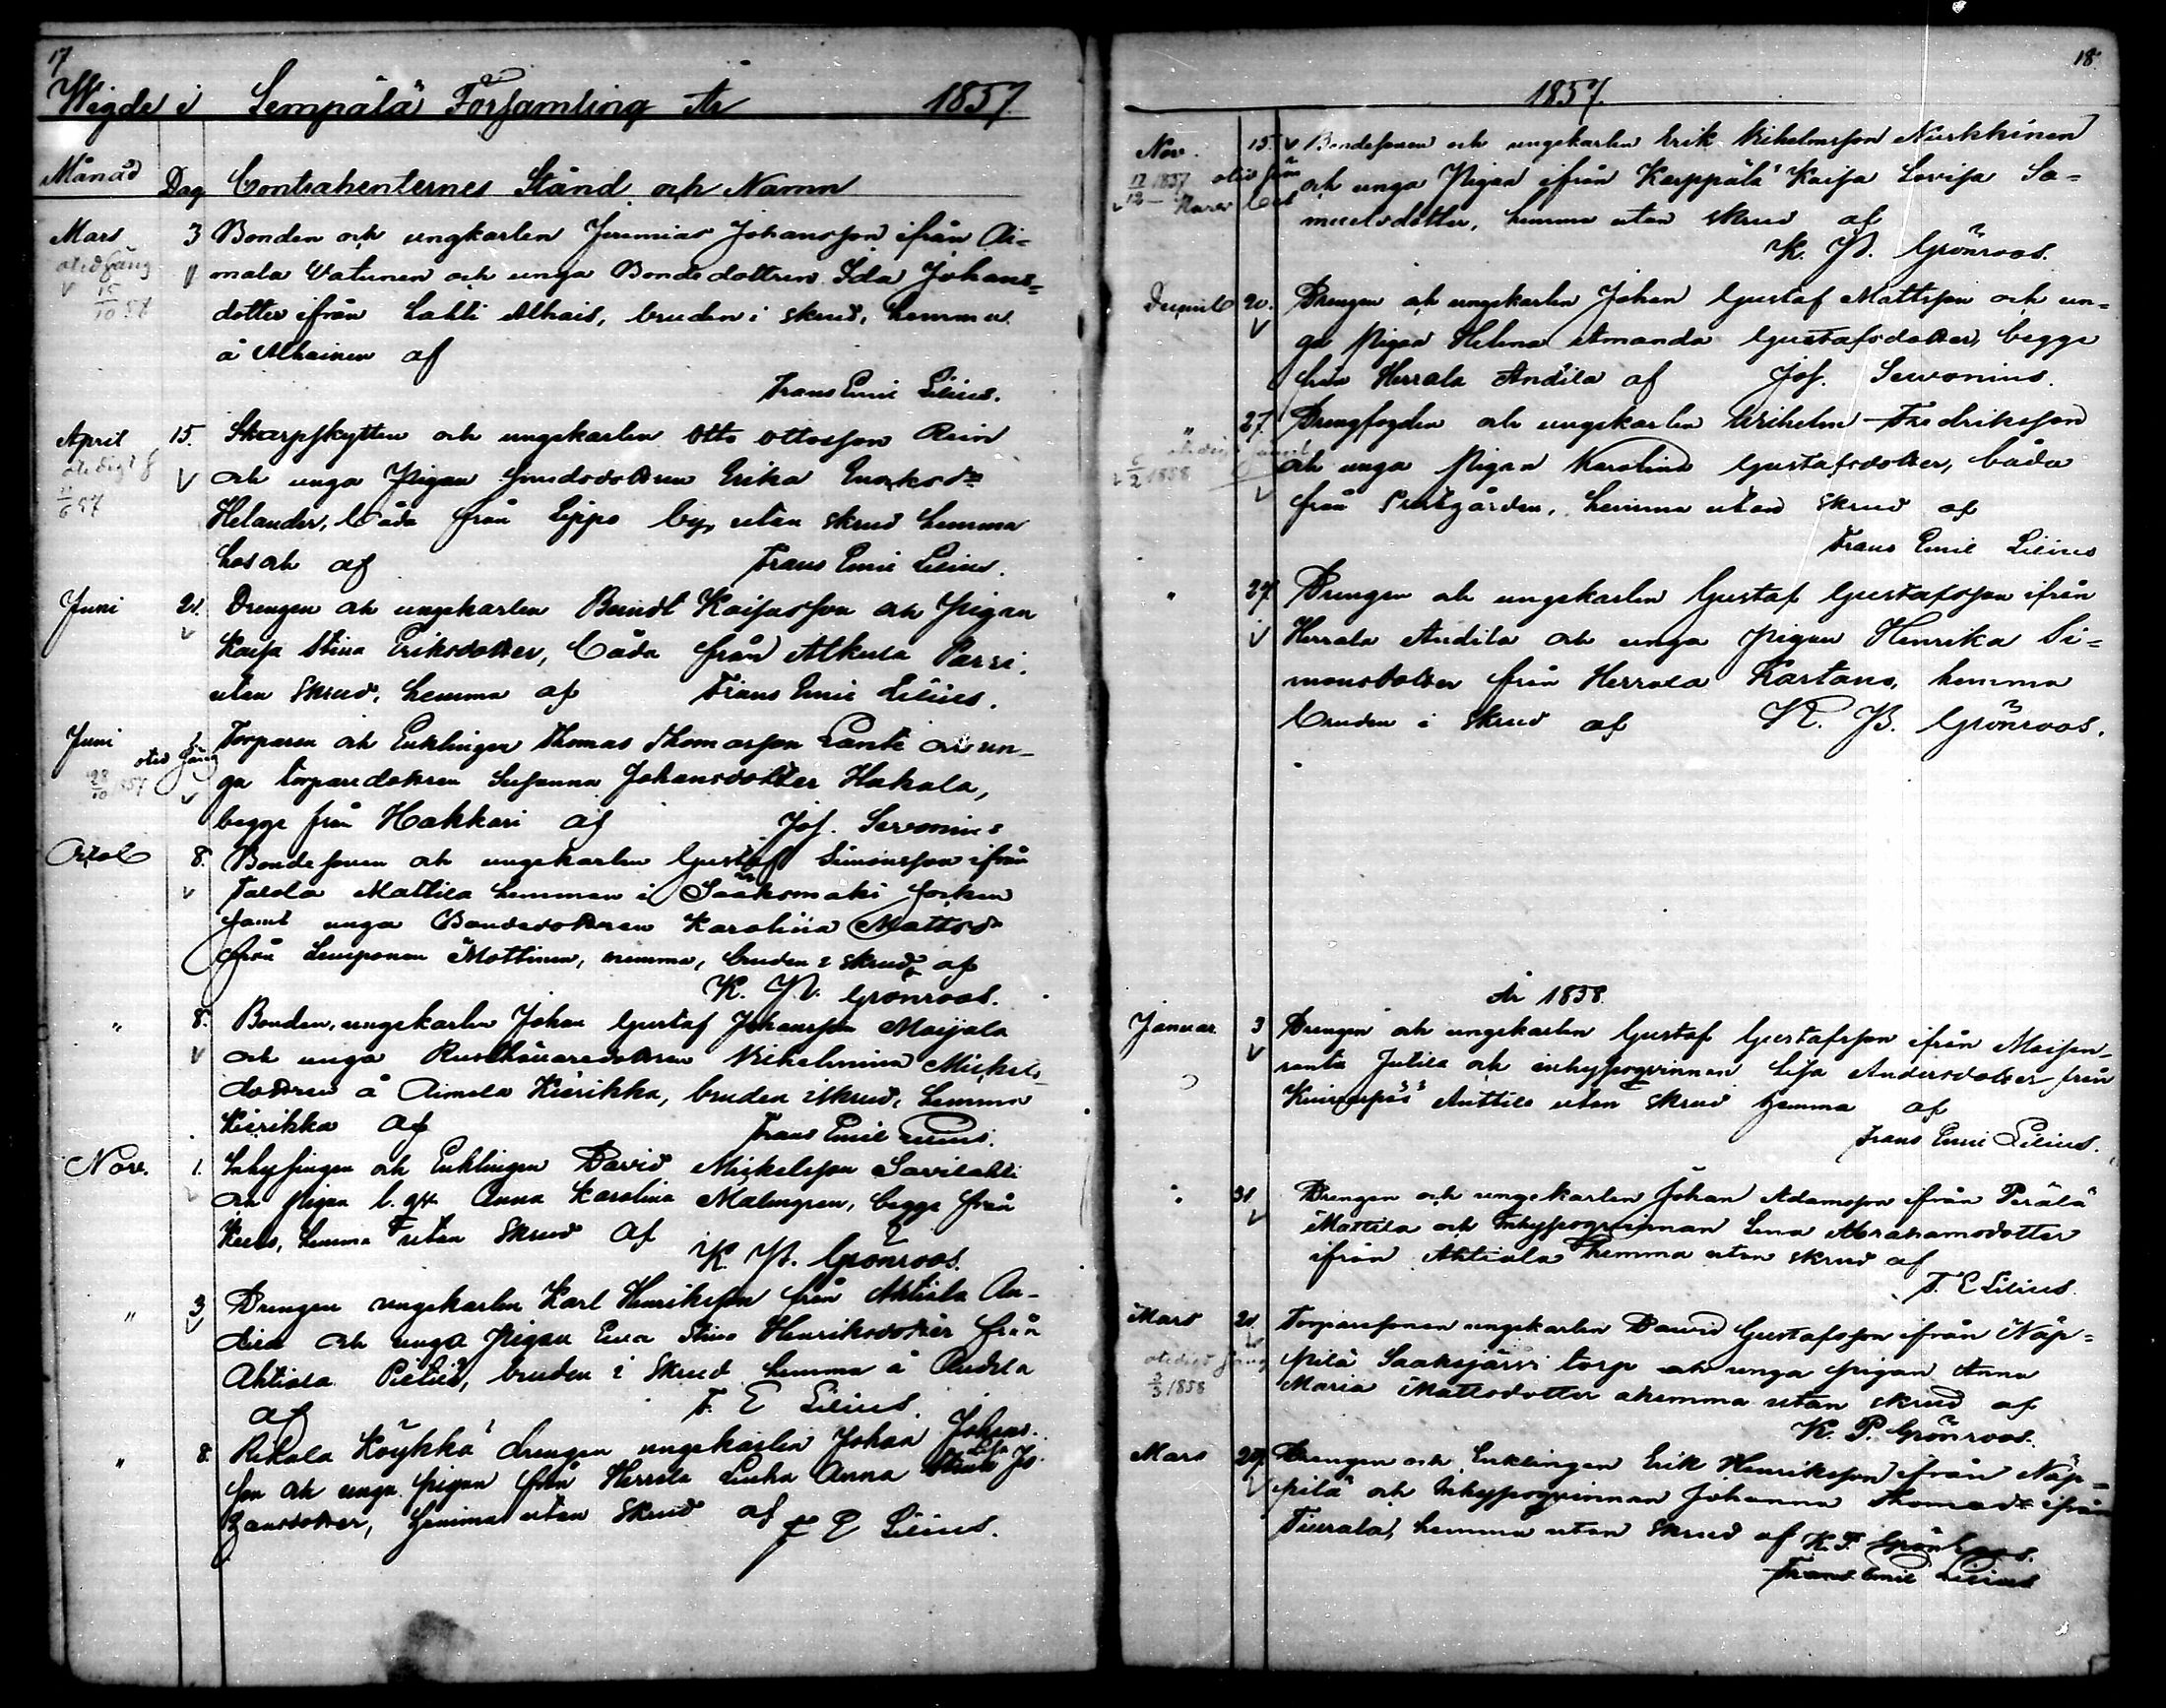 17
Wigde i Lempälä Församling År 1857.
Månad Dag Contrahenternes Stånd och Namn
Mars 3 Bonden och ungkarlen Jeremias Johansson ifrån Ai=
mala Vatunen och unga Bondedottren Ida Johans=
15/10 57
dotter ifrån Lahti Alhais, bruden i skrud, hemma
å Alhainen af
Frans Emil Lilius.
April 15. Skarpskytten och ungekarlen Otto Ottosson Rein
och unga Pigan Erika
Helander, båda från Lippo by, utan skrud hemma
af Frans Emil Lilius.
Juni 21. Drengen och ungekarlen Berndt Kaisasson och Pigan
Kaisa Stina Eriksdotter, båda från Alkula Passi,
utan skrud, hemma af Frans Emil Lilius.
Juni Torparen och Enklingen Thomas Thomasson Lante och un-
ga torparedottren Susanna Johansdotter Hakala,
28/10 1857
begge från Hakkari af Jos. Sevonius
Octob 8. Bondesonen och ungekarlen Gustaf Simonsson ifrån
Tarola Mattila hemman i Sääksmäki socken
samt unga Bondedottren Karolina Mattsdr
från Lemponen Mottinen, hemma, bruden i skrud, af
K. P. Grönroos.
" 8. Bonden, ungekarlen Johan Gustaf Johansson Maijala
och unga Rusthållaredottren Wilhelmina Mickels-
dottren å Aimala Kierikka, bruden i skrud, hemma
Kierikka af Frans Emil Lilius.
Nov. 1. Inhysingen och Enklingen David Mickelsson Savilahti
och Pigan Anna Karolina Malmgren, begge från
hemma utan skrud af
K. P. Grönroos.
" 3 Drengen ungekarlen Karl Henriksson från Ahtiala An-
dila och unga Pigan Eva Stina Henriksdotter från
Ahtiala Pietilä, bruden i skrud hemma å Andila
af F. E Lilius.
" 8. Rikala Köykkä drengen ungekarlen Johan Johans-
son och unga pigan från Herrala Anna Lisa Jo-
hansdotter, hemma utan skrud af F E Lilius.
18.
1857.
Nov. 15. Bondesonen och ungekarlen Erik Wilhelmsson Nurkkinen
12/12 1857
och unga Pigan ifrån Karppälä Kaisa Lovisa Sa=
muelsdotter, hemma utan skrud af
K. P. Grönroos.
20. Drengen och ungekarlen Johan Gustaf Mattsson och un=
ga Pigan Helena Amanda Gustafsdotter, begge
från Herrala Andila af Jos. Sevonius.
" 27. Drengfogden och ungekarlen Wilhelm Fredriksson
2 1858
och unga Pigan Karolina Gustafsdotter, båda
från Prestgården, hemma utan skrud af
Frans Emil Lilius
" 27 Drengen och ungekarlen Gustaf Gustafsson ifrån
Herrala Andila och unga pigan Henrika Si=
monsdotter från Herrala Kartano, hemma
bruden i skrud af K. P. Grönroos.
År 1858.
Januar. 3 Drengen och ungekarlen Gustaf Gustafsson ifrån Moisen-
ranta Jutila och inhysqvinnan Lisa Andersdotter från
Kuivaspää Anttila utan skrud hemma af
Frans Emil Lilius.
" 31. Drengen och ungekarlen Johan Adamsson ifrån Perälä
Mattila och Inhysqvinnan Lena Abrahamsdotter
ifrån Ahtiala hemma utan skrud af
F. E Lilius.
Mars 21. Torparesonen ungekarlen David Gustafsson ifrån Näp=
pilä Sääksjärvi torp och unga pigan Anna
3/3 1858
Maria Mattsdotter hemma utan skrud af
K. P. Grönroos.
Mars 28. Drengen och Enklingen Erik Henriksson ifrån Näp=
pilä och Inhysqvinnan Johanna Thomasdr ifrån
Tiurala, hemma utan skrud af K. P. Grönroos.
Frans Emil Lilius